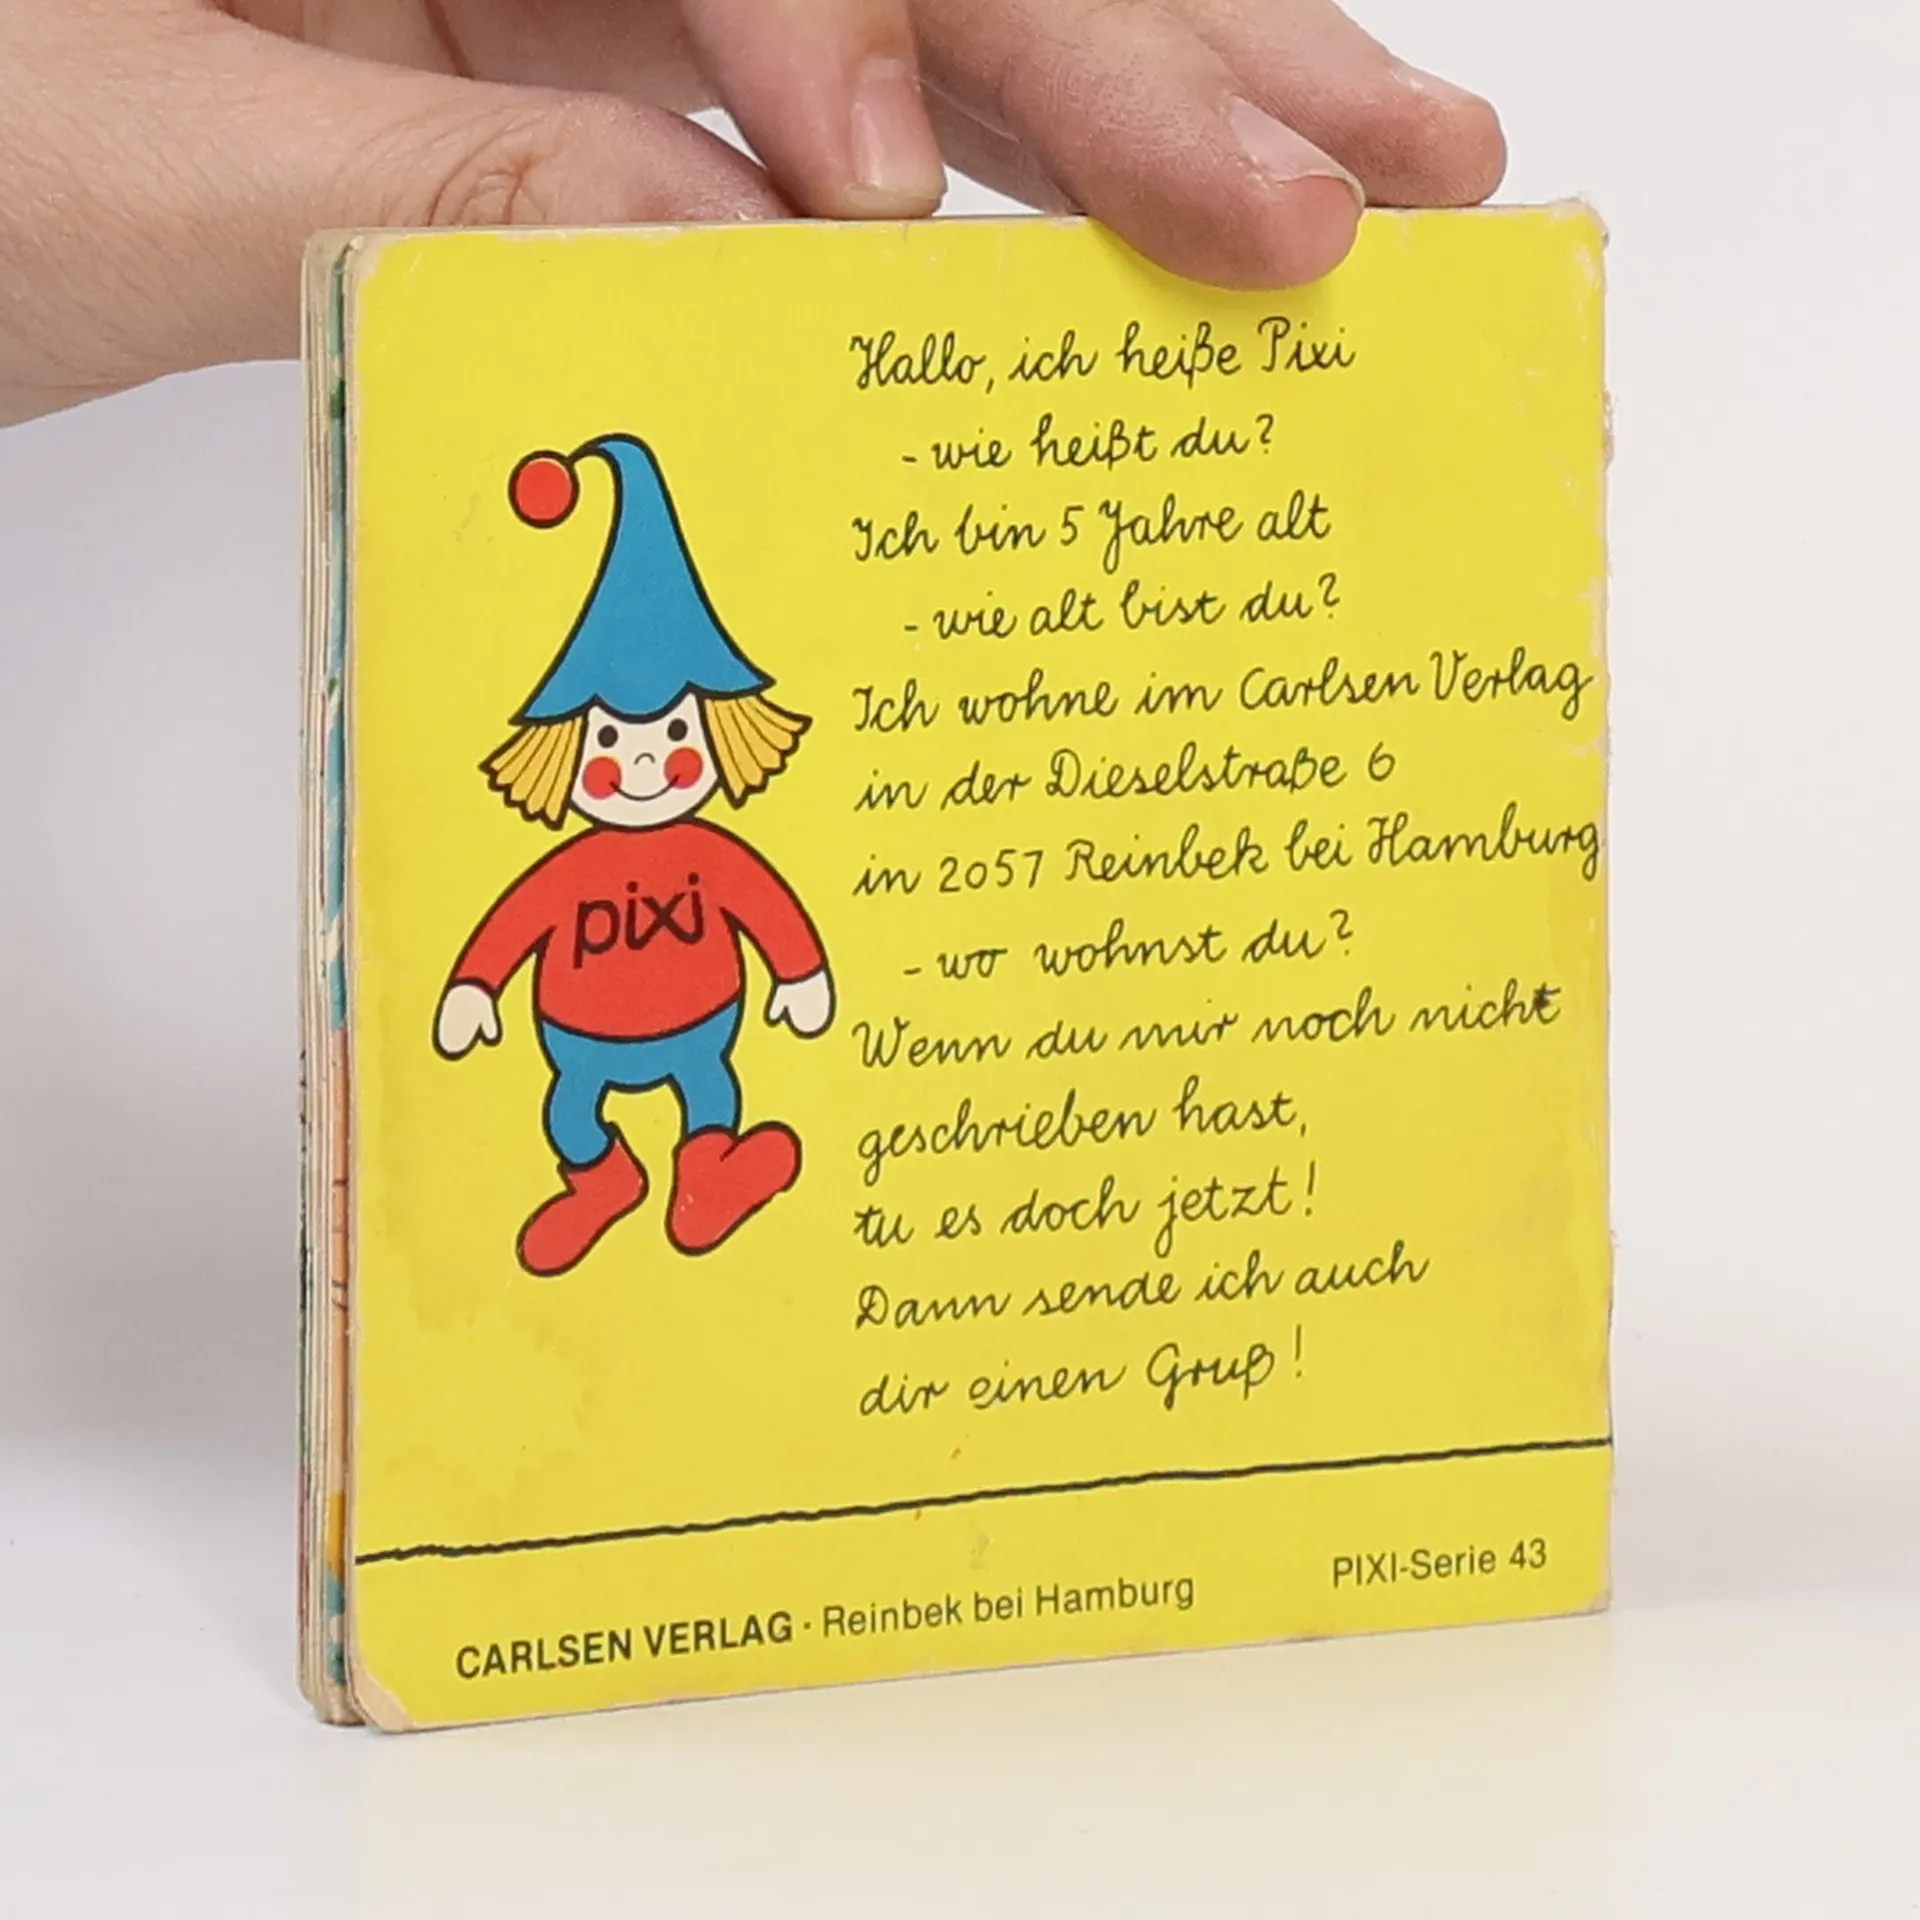 Hallo, ich heiße Pixi
- wie heißt du?
Ich bin 5 Jahre alt
- wie alt bist du?
Ich wohne im Carlsen Verlag
in der Dieselstraße 6
in 2057 Reinbek bei Hamburg
- wo wohnst du?
Wenn du mir noch nicht
geschrieben hast,
tu es doch jetzt!
Dann sende ich auch
dir einen Gruß!
pixi
CARLSEN VERLAG · Reinbek bei Hamburg
PIXI-Serie 43